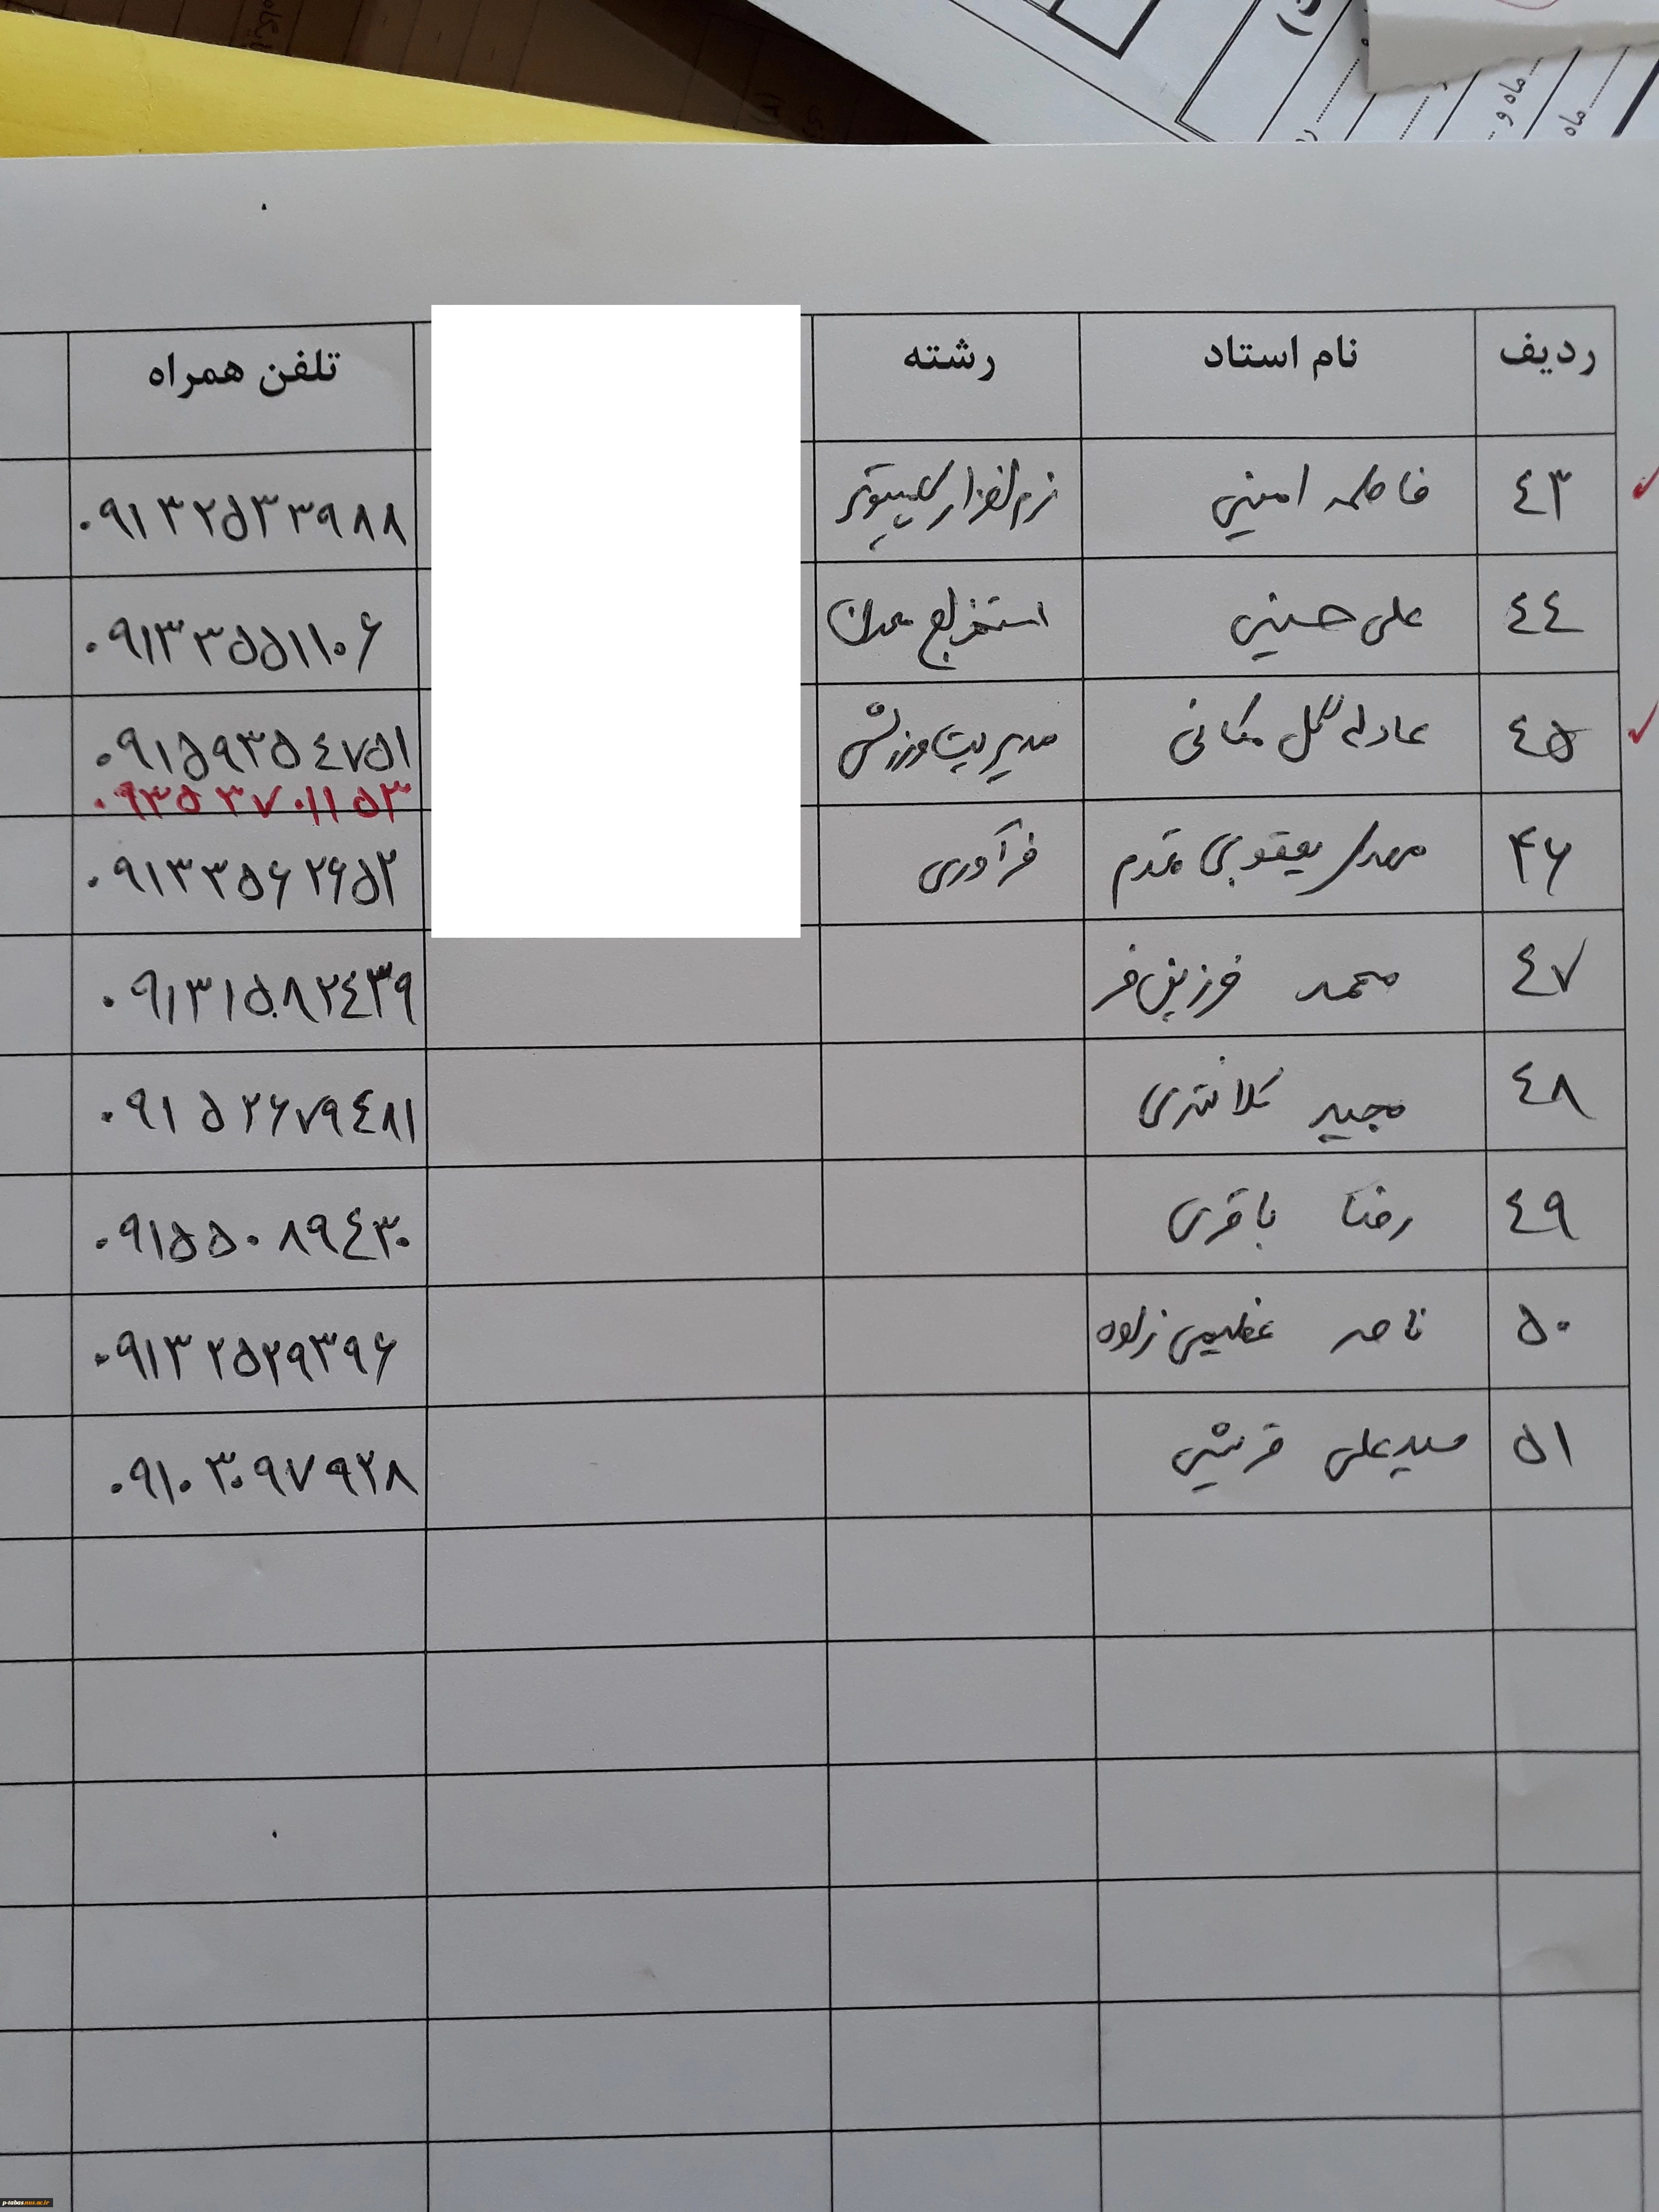 ردیف نام استاد رشته تلفن همراه
٤٣ فاطمه امینی نرم افزار کامپیوتر ۰۹۱۳۲۵۳۳۹۸۸
٤٤ علی حسینی استخراج معدن ۰۹۱۳۳۵۵۱۱۰۶
٤۵ عادله گل مکانی مدیریت ورزشی ۰۹۱۵۹۳۵٤۷۵۱
۰۹۳۵۳۷۰۱۱۵۳
۴۶ مهدی یعقوبی مقدم فرآوری ۰۹۱۳۳۵۶۲۶۵۲
٤۷ محمد فرزین فر ۰۹۱۳۱۵۸۲٤۳۹
٤۸ مجید کلانتری ۰۹۱۵۲۶۷۹٤۸۱
٤۹ رضا باقری ۰۹۱۵۵۰۸۹٤۳۰
۵۰ ناصر عظیمی زاده ۰۹۱۳۲۵۲۹۳۹۶
۵۱ سیدعلی قریشی ۰۹۱۰۳۰۹۷۹۲۸
p-tabas.nus.ac.ir